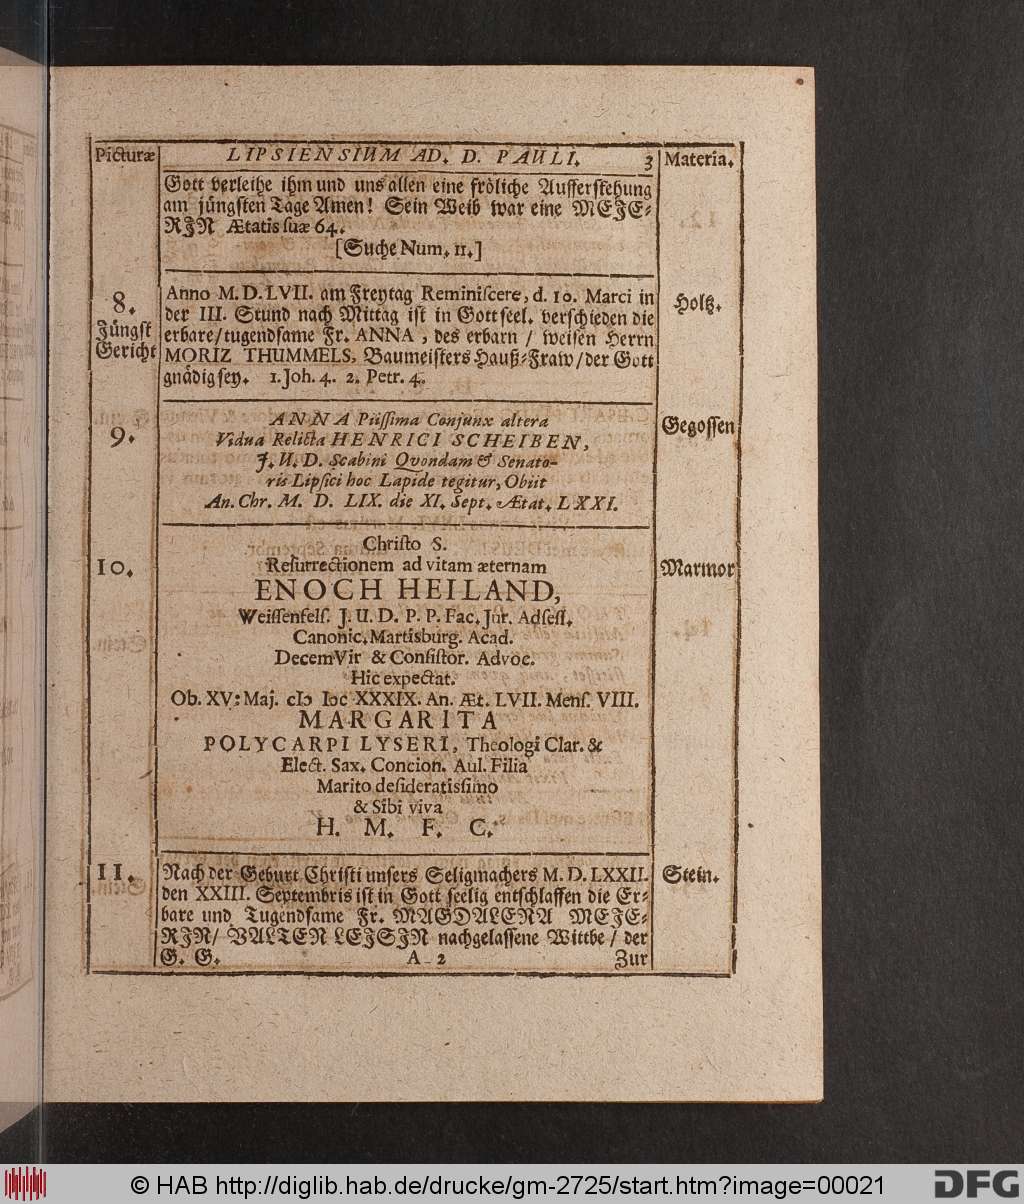 Picturæ LIPSIENSIUM AD. D. PAULI. 3 Materia.
Gott verleihe ihm und uns allen eine fröliche Aufferstehung
am jüngsten Tage Amen! Sein Weib war eine MEJE-
RJN Ætatis suæ 64.
[Suche Num. 11.]
8. Anno M. D. LVII. am Freytag Reminiscere, d. 10. Marci in Holtz.
Jüngst der III. Stund nach Mittag ist in Gott seel. verschieden die
Gericht erbare/tugendsame Fr. ANNA, des erbarn / weisen Herrn
MORIZ THUMMELS, Baumeisters Hauß-Fraw/der Gott
gnädig sey. 1. Joh. 4. 2. Petr. 4.
ANNA Piissima Conjunx altera Gegossen
9. Vidua Relicta HENRICI SCHEIBEN,
J. U. D. Scabini Qvondam & Senato-
ris Lipsici hoc Lapide tegitur, Obiit
An. Chr. M. D. LIX. die XI. Sept. Ætat. LXXI.
Christo S.
10. Resurrectionem ad vitam æternam Marmor
ENOCH HEILAND,
Weissenfels. J. U. D. P. P. Fac. Jur. Adsess.
Canonic. Martisburg. Acad.
DecemVir & Consistor. Advoc.
Hic expectat.
Ob. XV: Maj. cIɔ Iɔc XXXIX. An. Æt. LVII. Mens. VIII.
MARGARITA
POLYCARPI LYSERI, Theologi Clar. &
Elect. Sax. Concion. Aul. Filia
Marito desideratissimo
& Sibi viva
H. M. F. C.
11. Nach der Geburt Christi unsers Seligmachers M. D. LXXII. Stein.
den XXIII. Septembris ist in Gott seelig entschlaffen die Er-
bare und Tugendsame Fr. MAGDALENA MEJE-
RJN/ VALTEN LEJSJN nachgelassene Wittbe / der
G. G. A 2 Zur
© HAB http://diglib.hab.de/drucke/gm-2725/start.htm?image=00021
DFG